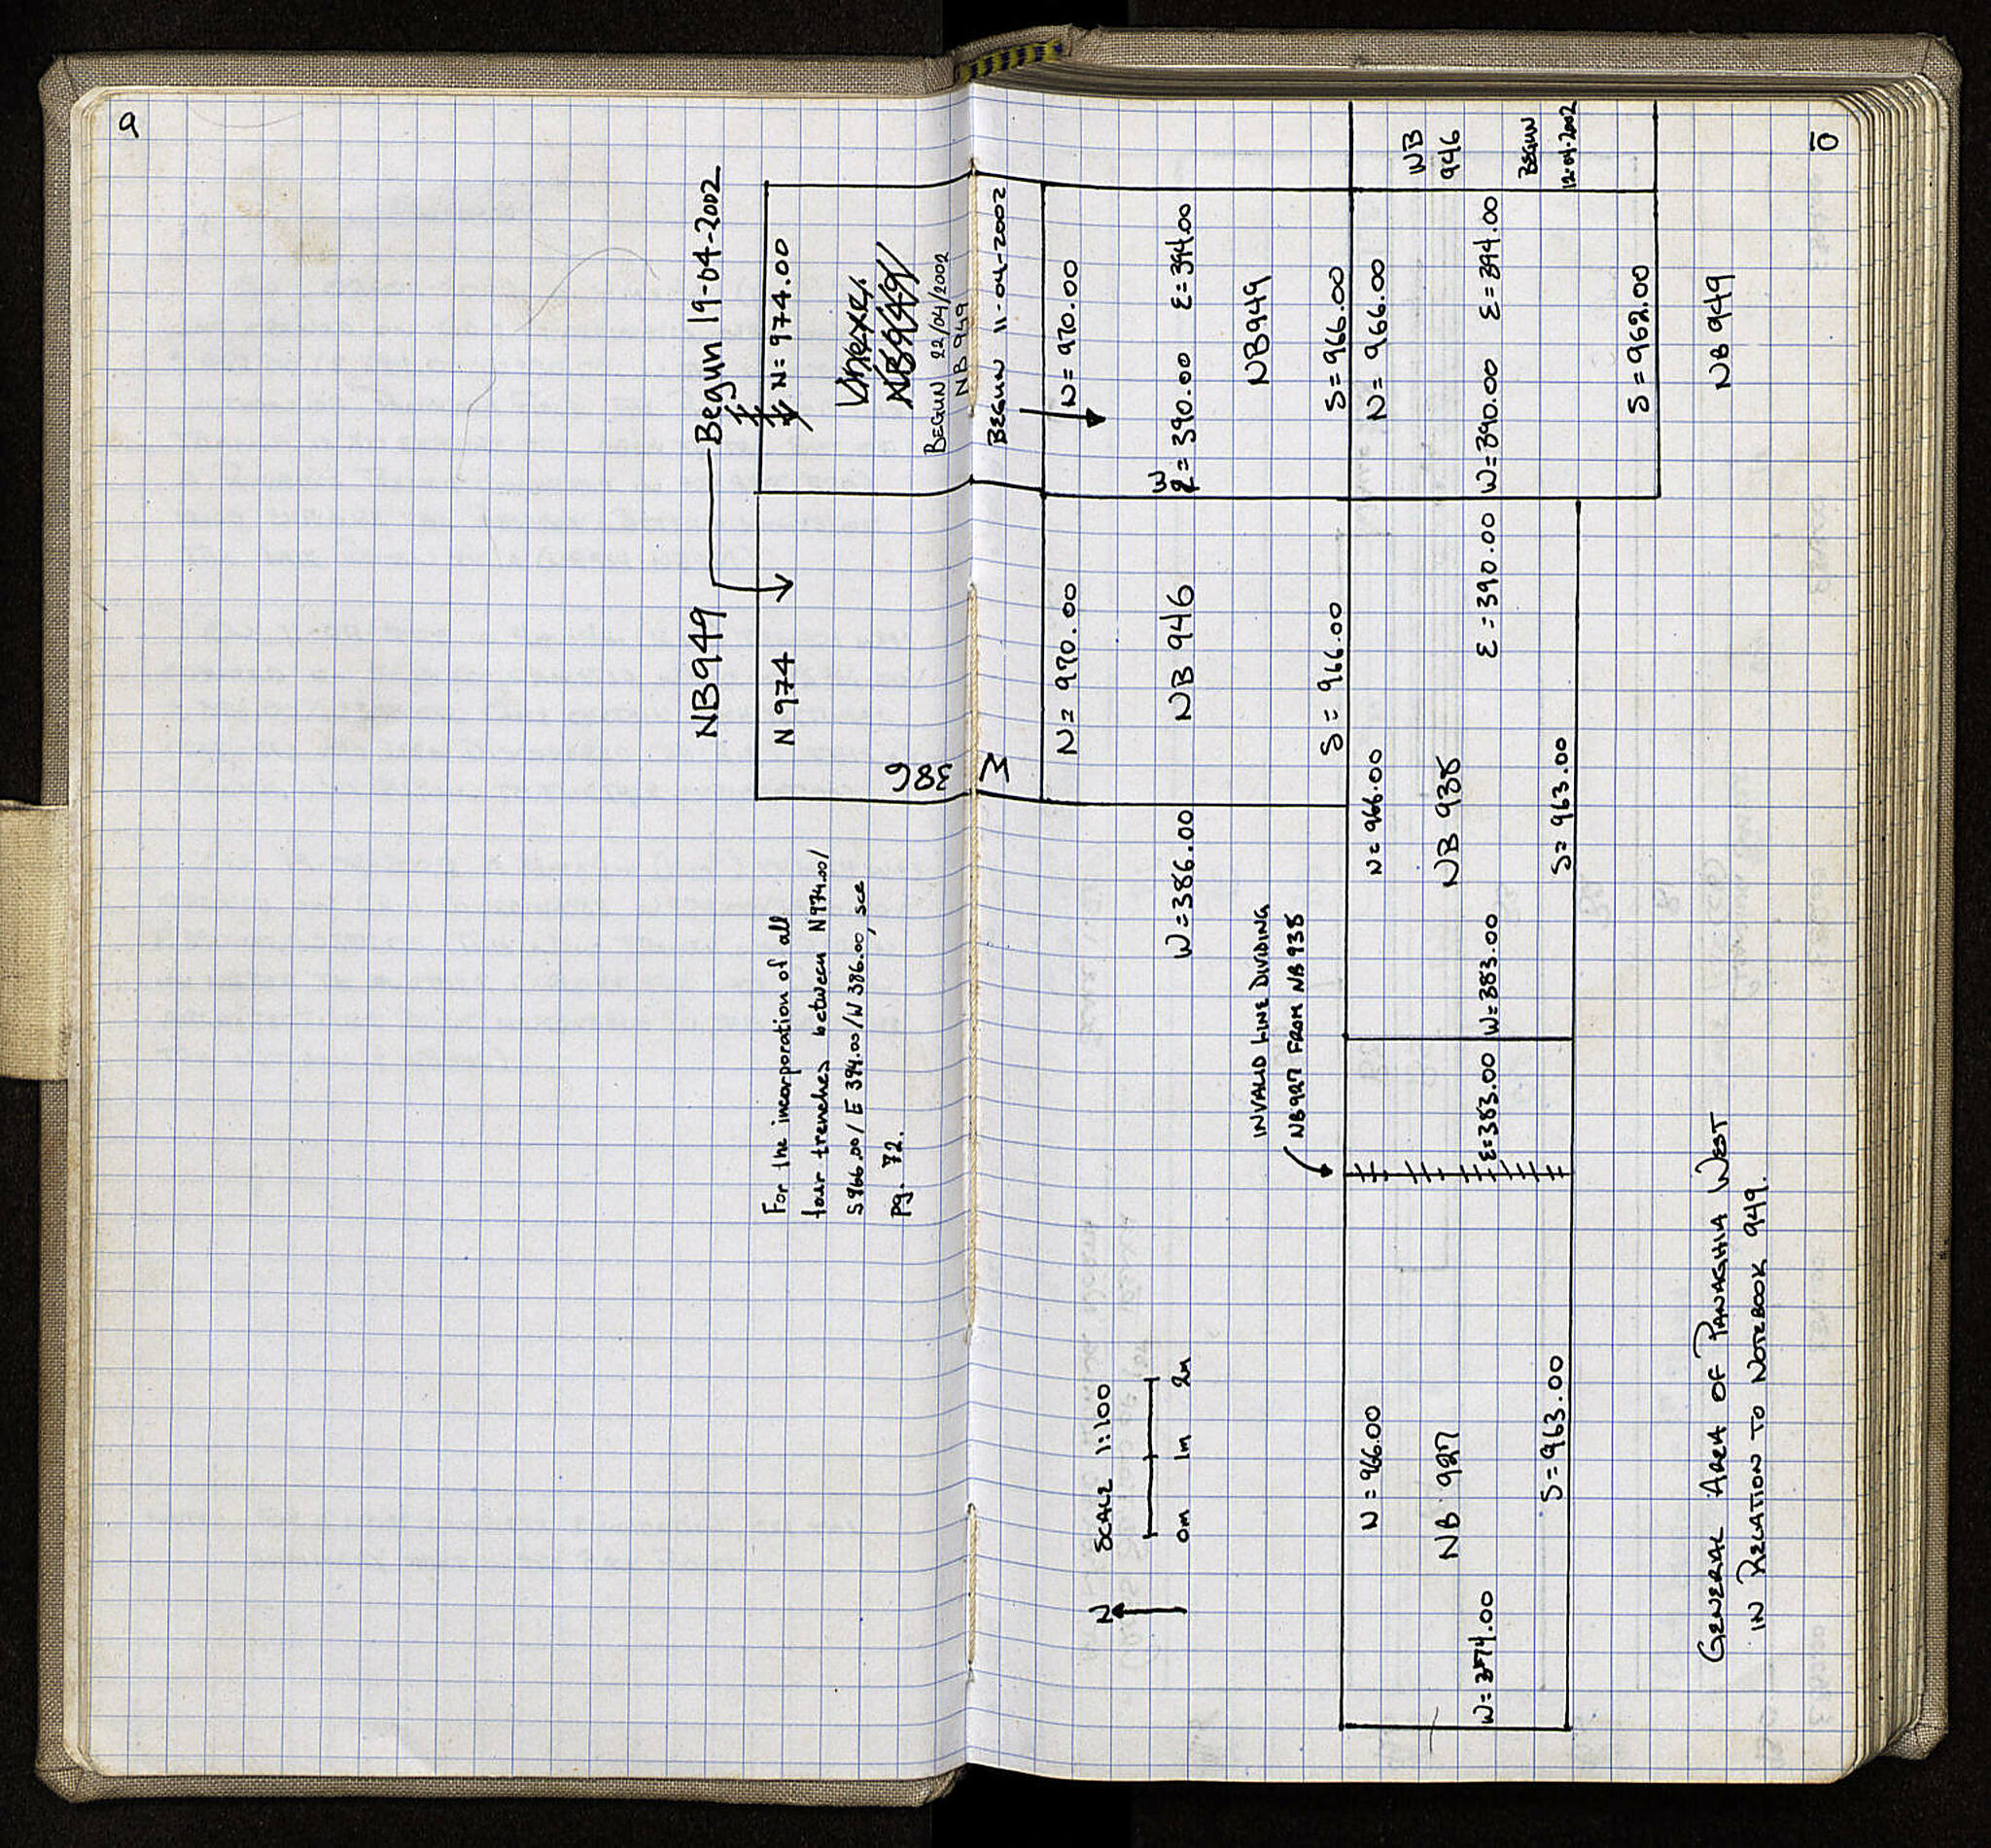 9
NB949
Begun 19-04-2002
N 974
N = 974.00
386
W
BEGUN 22/04/2002
NB 949
BEGUN 11-04-2002
For the incorporation of all
four trenches between N974.00/
S966.00/E 394.00/W 386.00, see
pg. 72.
10
N
SCALE 1:100
0m 1m 2m
N = 970.00
N = 970.00
W = 386.00
NB 946
W
= 390.00
E = 394.00
NB949
S = 966.00
S = 966.00
INVALID LINE DIVIDING
NB 927 FROM NB 938
N = 966.00
N = 966.00
N = 966.00
NB
946
BEGUN
12-04-2002
NB 927
NB 938
W = 374.00
E = 383.00
W = 383.00
E = 390.00
W = 390.00
E = 394.00
S = 963.00
S = 963.00
S = 962.00
NB 949
GENERAL AREA OF PANAGHIA WEST
IN RELATION TO NOTEBOOK 949.